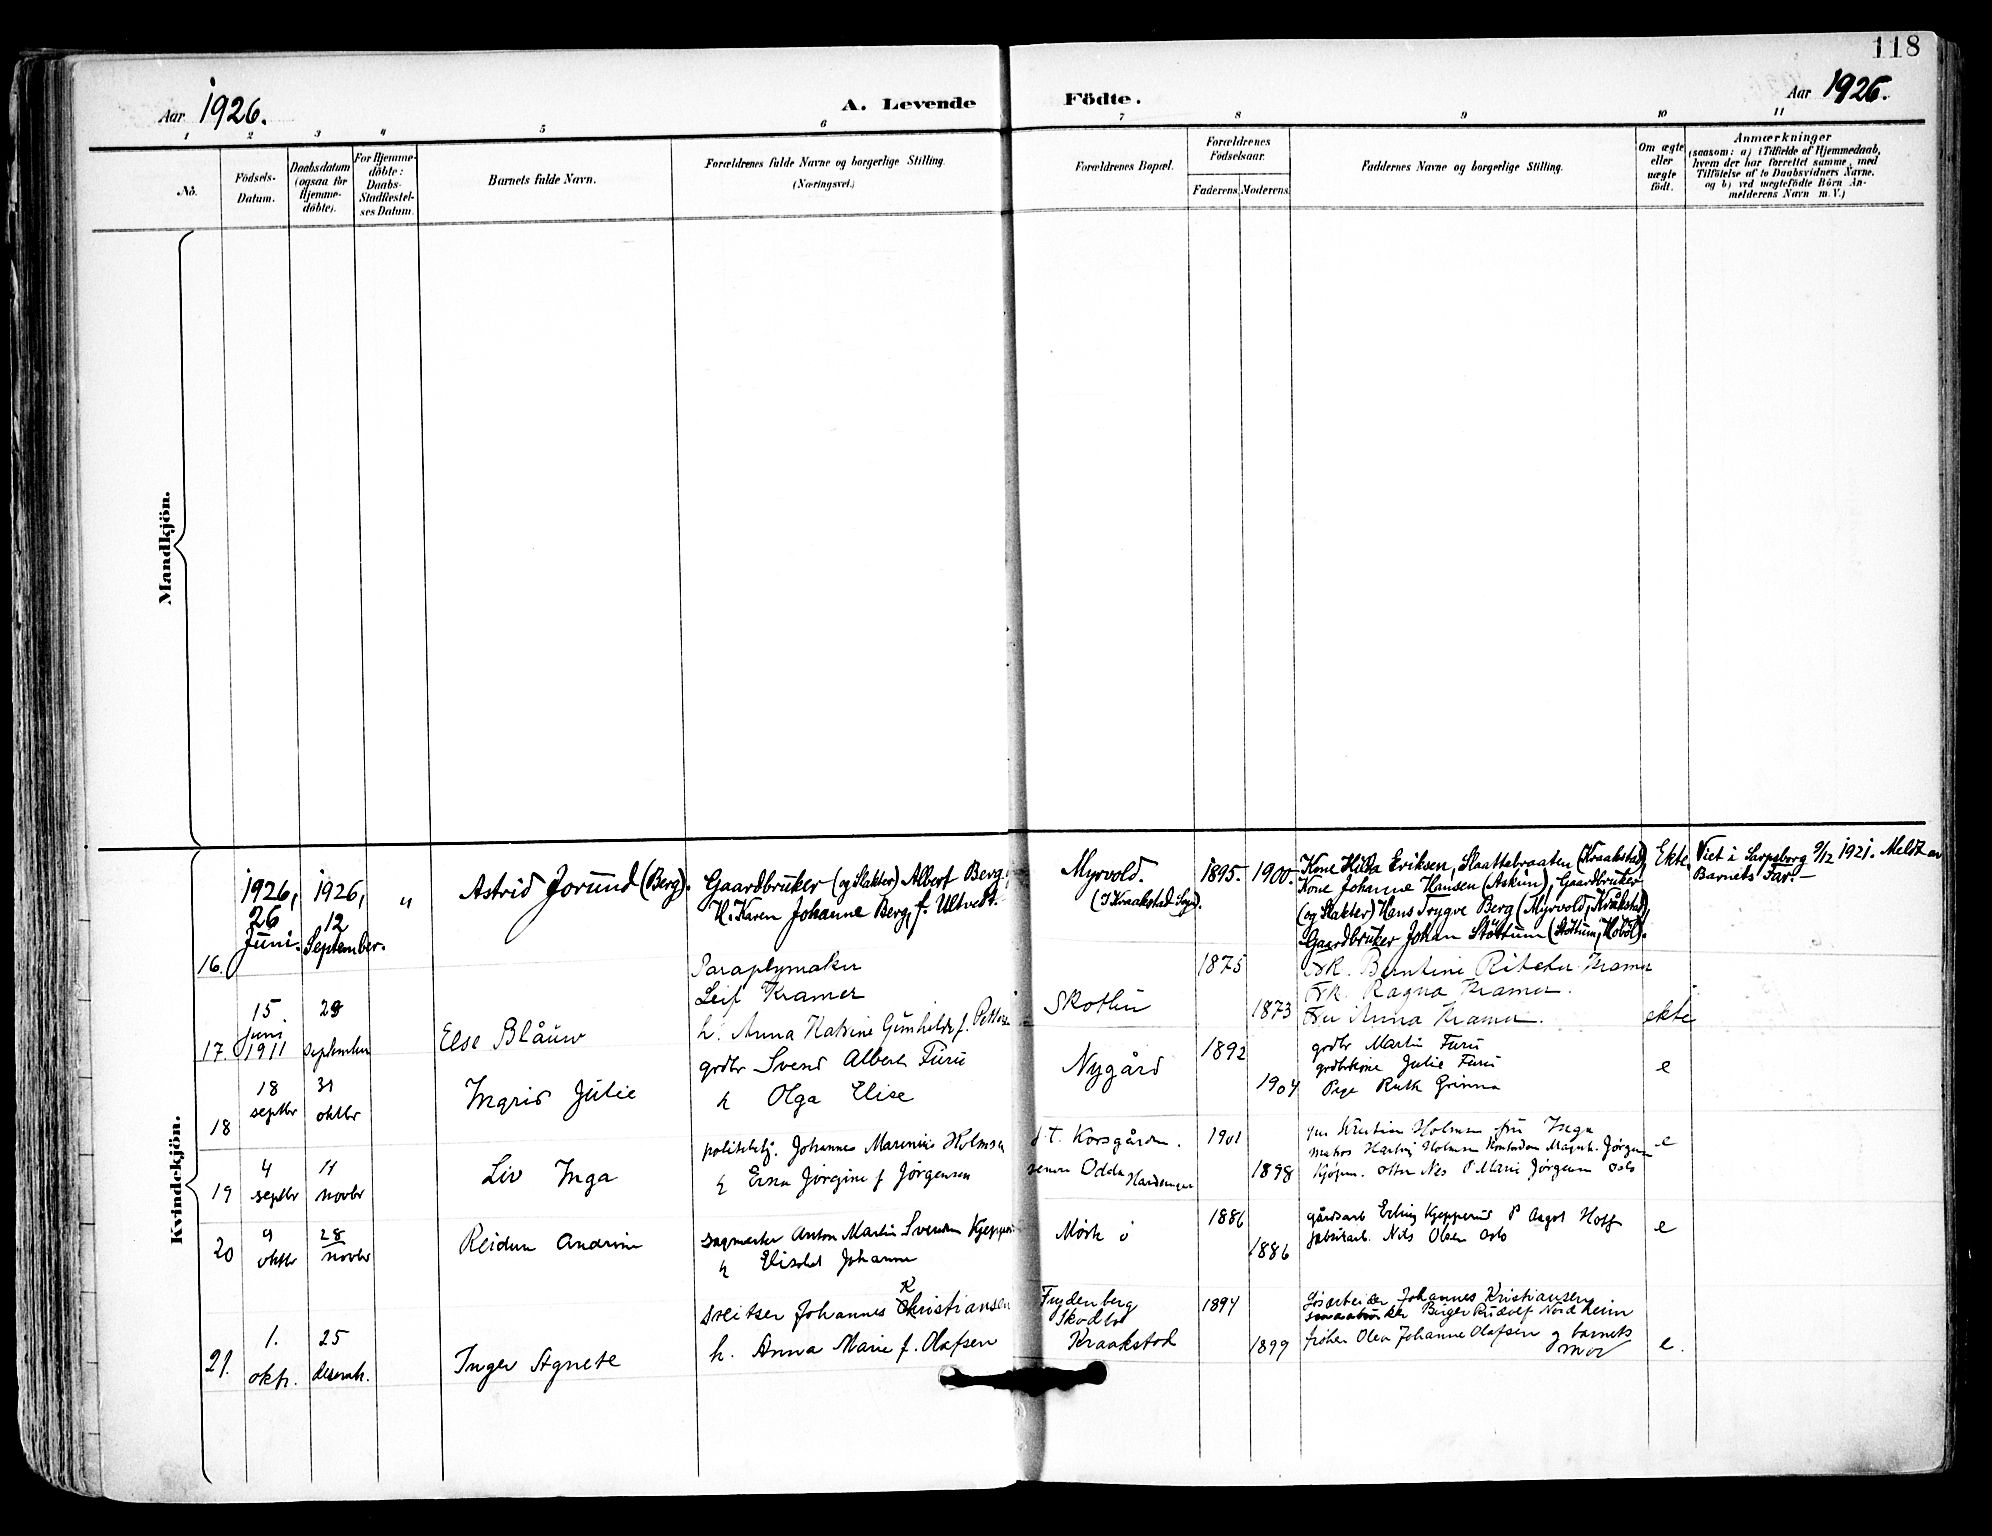 118
Aar 1926.
A. Levende Födte.
Aar 1926.
1 2 3 4 5 6 7 8 9 10 11
No.
Födsels-
Datum.
Daabsdatum
(ogsaa for
Hjemme-
döbte).
For Hjemme-
döbte:
Daabs-
Stadfæstel-
ses Datum.
Barnets fulde Navn.
Forældrenes fulde Navne og borgerlige Stilling.
(Næringsvei.)
Forældrenes Bopæl.
Forældrenes
Födselsaar.
Faderens. Moderens.
Faddernes Navne og borgerlige Stilling.
Om ægte
eller
uægte
födt.
Anmærkninger
(saasom: a) i Tilfælde af Hjemmedaab,
hvem der har forrettet samme, med
Tilföielse af to Daabsvidners Navne.
og b) ved uægtefödte Börn An-
melderens Navn m. V.)
Mandkjön.
Kvindekjön.
16.
1926,
26
Juni.
1926,
12
September.
"
Astrid Jorund (Berg).
Gaardbruker (og Slakter) Albert Berg,
H. Karen Johanne Berg, f. Ultvedt.
Myrvold.
(I Kraakstad Sogn).
1895. 1900.
Kone Hilda Eriksen, Slaattebraaten (Kraakstad),
Kone Johanne Hansen (Askim), Gaardbruker
(og Slakter) Hans Trygve Berg (Myrvold, Kråkstad),
Gaardbruker Johan Støttum (Støttum, Hobøl).
Ekte.
Viet i Sarpsborg 9/12 1921. Meldt av
Barnets Far.
17.
15
juni
1911
29
september
Else Blåuw
Paraplymaker
Leif Kramer
h. Anna Katrine Gunhilde f.
Skotbu
1875
1873
Frk. Berntine Kramer
Frk. Ragna Kramer.
Fru Anna Kramer.
ekte
18
18
septbr
31
oktbr
Ingrid Julie
grdbr Svend Albert Furu
h Olga Elise
Nygård
1892
1904
grdbr Martin Furu
grdbrkone Julie Furu
Pige Ruth Grinna
e
19
4
septbr
11
novbr
Liv Inga
politibtj. Johannes Marenius Holmsen
h Erna Jørgine f Jørgensen
f. t. Korsgården.
senere Odda Hardanger
1901
1898
Kristian Holmsen fru Inga
matros Hartvig Holmsen Kontordam Magnh. Jørgensen
Kjøpm. Otto Nes P Marie Jørgensen Oslo
e
20
9
oktbr
28
novbr
Reidun Andrine
sagmester Anton Martin Svendsen Kjepperud
h Elisabet Johanne
Mørk
1886
1886
gårdsarb Erling Kjepperud P Aagot Hoff
fabrikarb. Nils Olsen Oslo
e
21.
1.
oktr.
25
desembr.
Inger Agnete
sveitser Johannes Kristiansen
h. Anna Marie f. Olafsen
Frydenberg
Skotbu
Kraakstad
1894
1899
Løsarbeider Johannes Kristiansen
smaabruker Birger Rudolf Nordheim
frøken Olea Johanne Olafsen og barnets
mor
e.